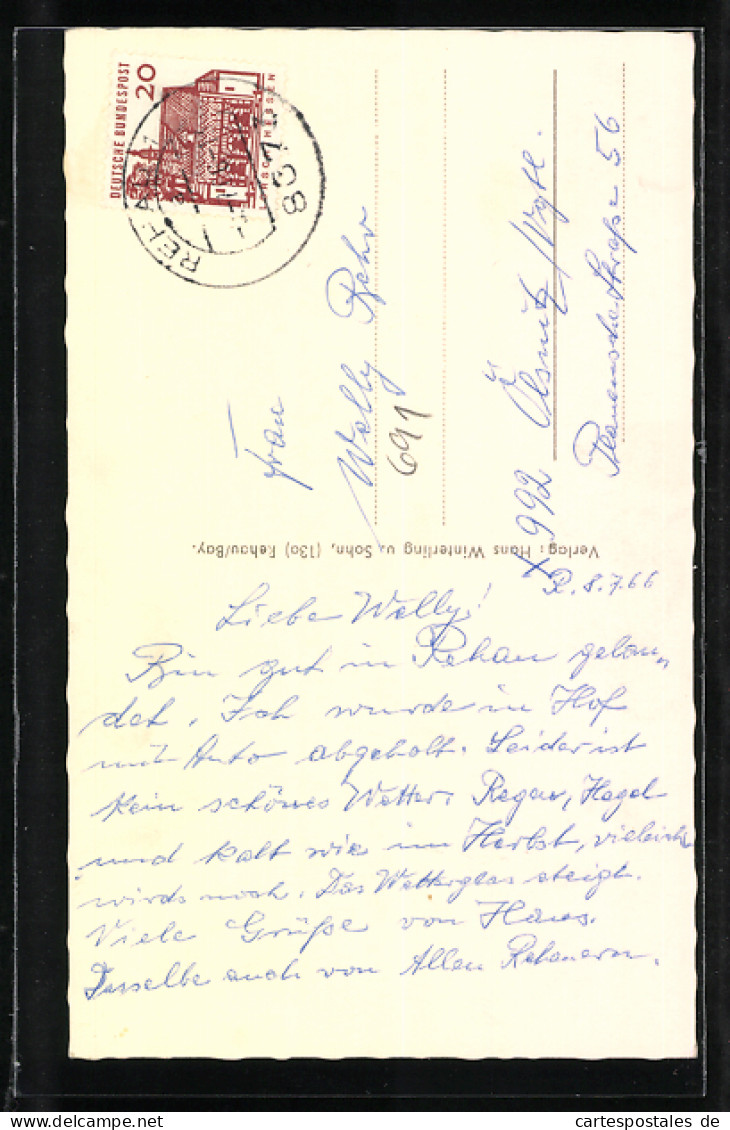 DEUTSCHE BUNDESPOST
20
REHAU 1
8673
Frau
Welly
691
X 992 Ölsnitz/Vgtl.
Plauensche Straße 56
Verlag: Hans Winterling u. Sohn, (13a) Rehau/Bay.
R. 8.7.66
Liebe Welly!
Bin gut in Rehau gelan,,
det. Ich wurde in Hof
mit Auto abgeholt. Leider ist
kein schönes Wetter: Regen, Hagel
und kalt wie im Herbst, vieleicht
wirds noch. Das Wetterglas steigt.
Viele Grüße von Hans.
Dasselbe auch von Allen Rehauern.
cartespostales de